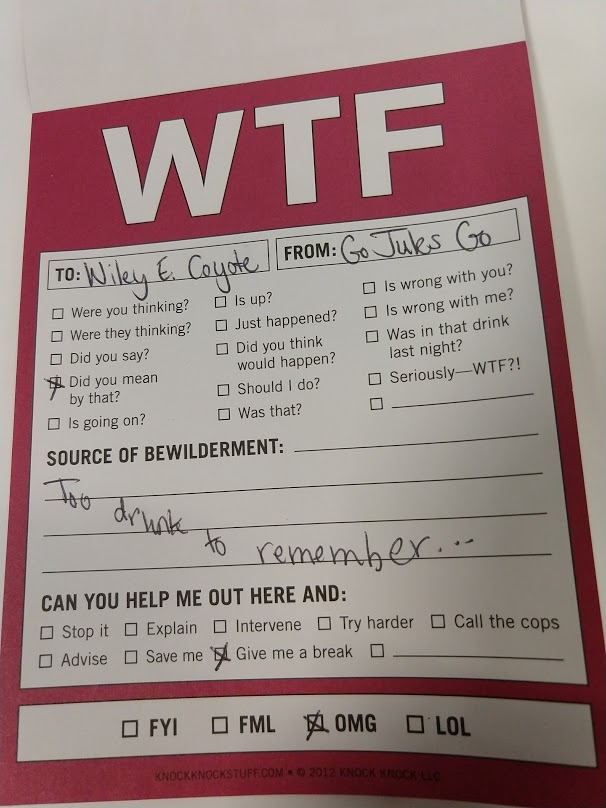 WTF
TO: Wiley E. Coyote FROM: Go Juks Go
☐ Were you thinking? ☐ Is up? ☐ Is wrong with you?
☐ Were they thinking? ☐ Just happened? ☐ Is wrong with me?
☐ Did you say? ☐ Did you think would happen? ☐ Was in that drink last night?
☒ Did you mean by that? ☐ Should I do? ☐ Seriously—WTF?!
☐ Is going on? ☐ Was that? ☐
SOURCE OF BEWILDERMENT:
Too drunk to remember...
CAN YOU HELP ME OUT HERE AND:
☐ Stop it ☐ Explain ☐ Intervene ☐ Try harder ☐ Call the cops
☐ Advise ☐ Save me ☒ Give me a break ☐
☐ FYI ☐ FML ☒ OMG ☐ LOL
KNOCKKNOCKSTUFF.COM • © 2012 KNOCK KNOCK LLC